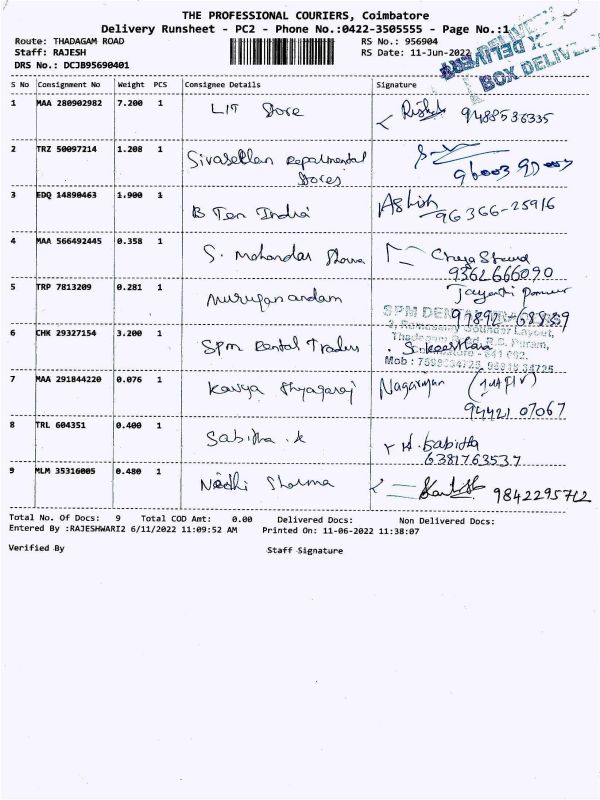 THE PROFESSIONAL COURIERS, Coimbatore
Delivery Runsheet - PC2 - Phone No.:0422-3505555 - Page No.:1
Route: THADAGAM ROAD RS No.: 956904
Staff: RAJESH RS Date: 11-Jun-2022
DRS No.: DCJB95690401
BOX DELIVERY
S No Consignment No Weight PCS Consignee Details Signature
1 MAA 280902982 7.200 1 LIT Store 9488536335
2 TRZ 50097214 1.208 1 Sivasekkan Depatmental
Stores
3 EDQ 14890463 1.900 1 B Ten India Ashish
96366-25916
4 MAA 566492445 0.358 1 S. Mohandas
9362666090
5 TRP 7813209 0.281 1 Murugan andam
SPM DENTAL
6 CHK 29327154 3.200 1 Spm Dental Traders
7 MAA 291844220 0.076 1 Kavya Thyagaraj
94421 07067
8 TRL 604351 0.400 1 Sabitha .k
6381763537
9 MLM 35316005 0.480 1 Nidhi Sharma 9842295712
Total No. Of Docs: 9 Total COD Amt: 0.00 Delivered Docs: Non Delivered Docs:
Entered By :RAJESHWARI2 6/11/2022 11:09:52 AM Printed On: 11-06-2022 11:38:07
Verified By Staff Signature